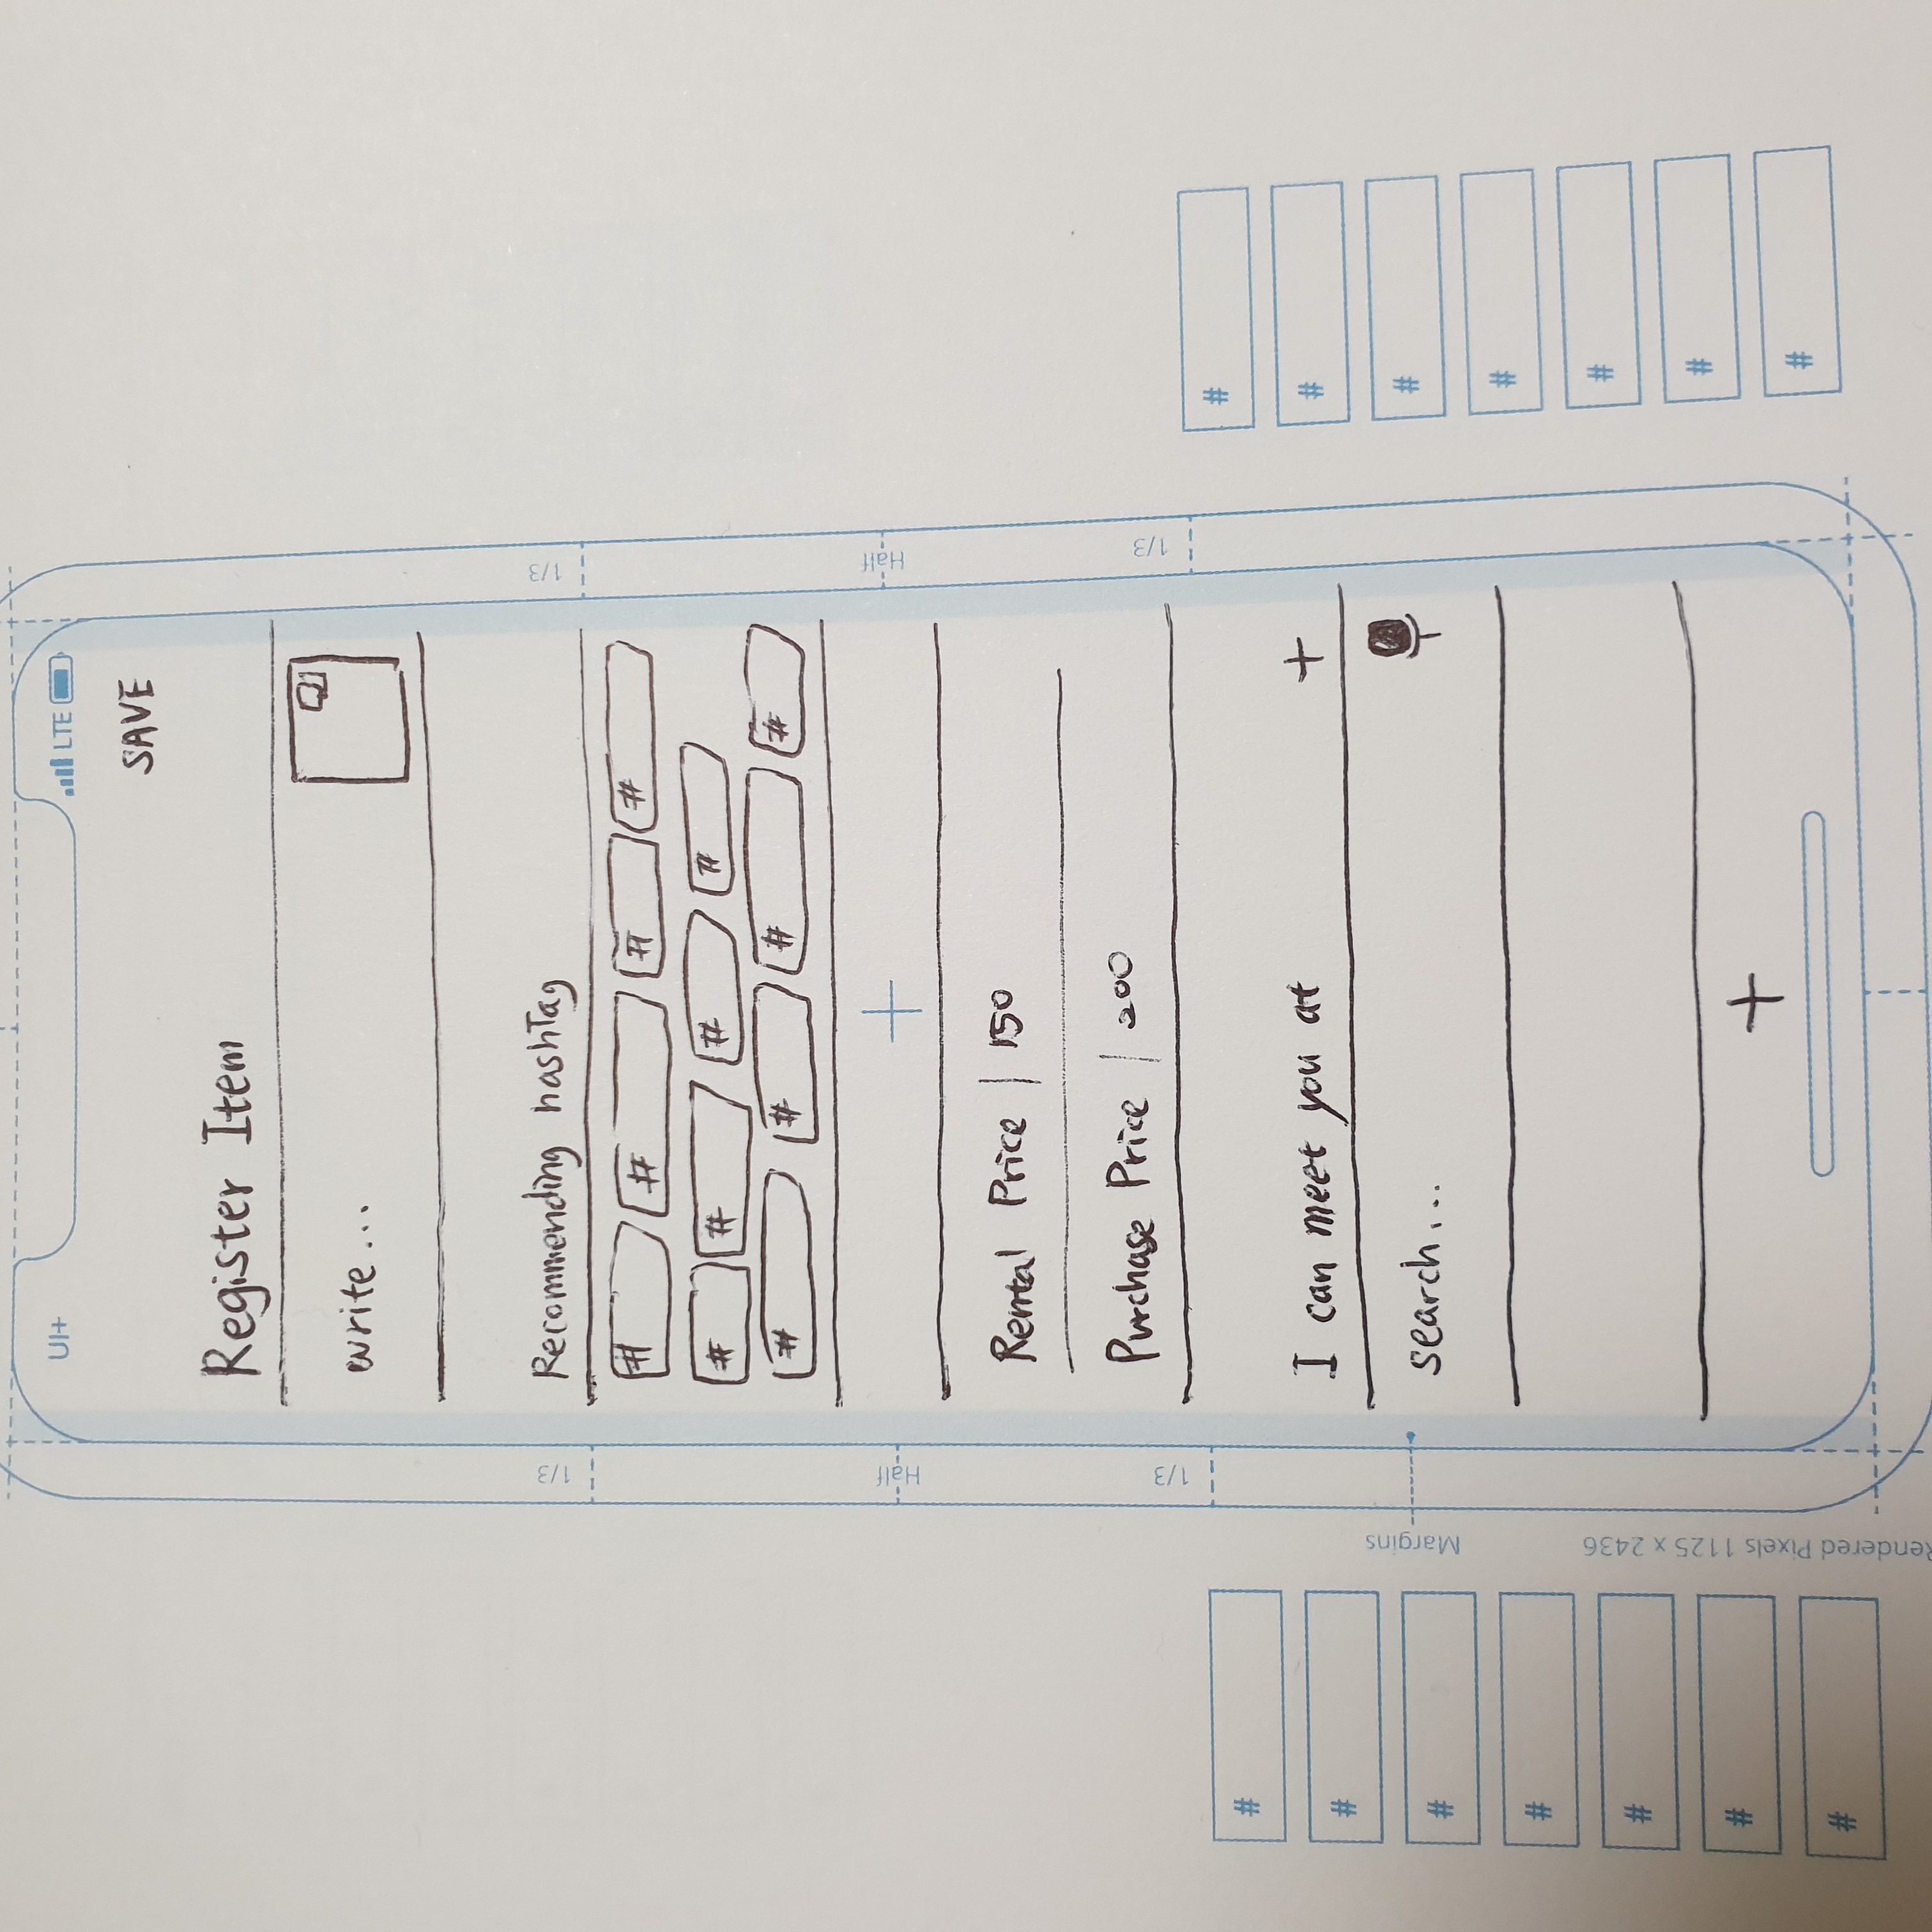 UI+ LTE
SAVE
Register Item
write...
Recommending hashTag
# # # #
# # # #
# # # #
Rental Price | 150
Purchase Price | 200
I can meet you at +
search...
+
1/3
Half
1/3
Margins
Rendered Pixels 1125 x 2436
1/3
Half
1/3
#
#
#
#
#
#
#
#
#
#
#
#
#
#